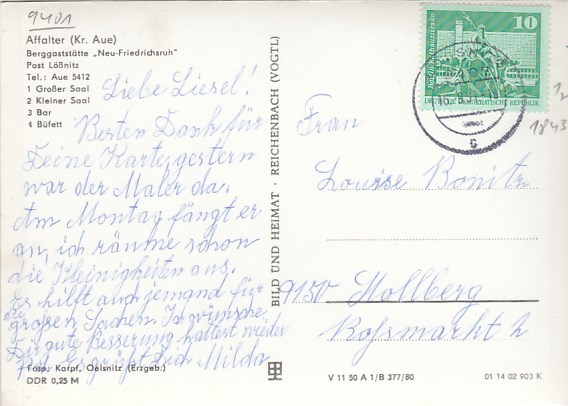 9401
Affalter (Kr. Aue)
Berggaststätte „Neu-Friedrichsruh"
Post Lößnitz
Tel.: Aue 5412
1 Großer Saal
2 Kleiner Saal
3 Bar
4 Büfett
Liebe Liesel!
Besten Dank für
Deine Karte, gestern
war der Maler da.
Am Montag fängt er
an, ich räume schon
die Kleinigkeiten aus.
Es hilft auch jemand für
die großen Sachen. Ich wünsche
Dir gute Besserung
Es grüßt Dich Milda
Foto: Karpf, Oelsnitz (Erzgeb.)
DDR 0,25 M
BILD UND HEIMAT · REICHENBACH (VOGTL)
10
DEUTSCHE DEMOKRATISCHE REPUBLIK
1843
Frau
Louise Bonitz
9150 Stollberg
Roßmarkt 2
V 11 50 A 1/B 377/80
01 14 02 903 K